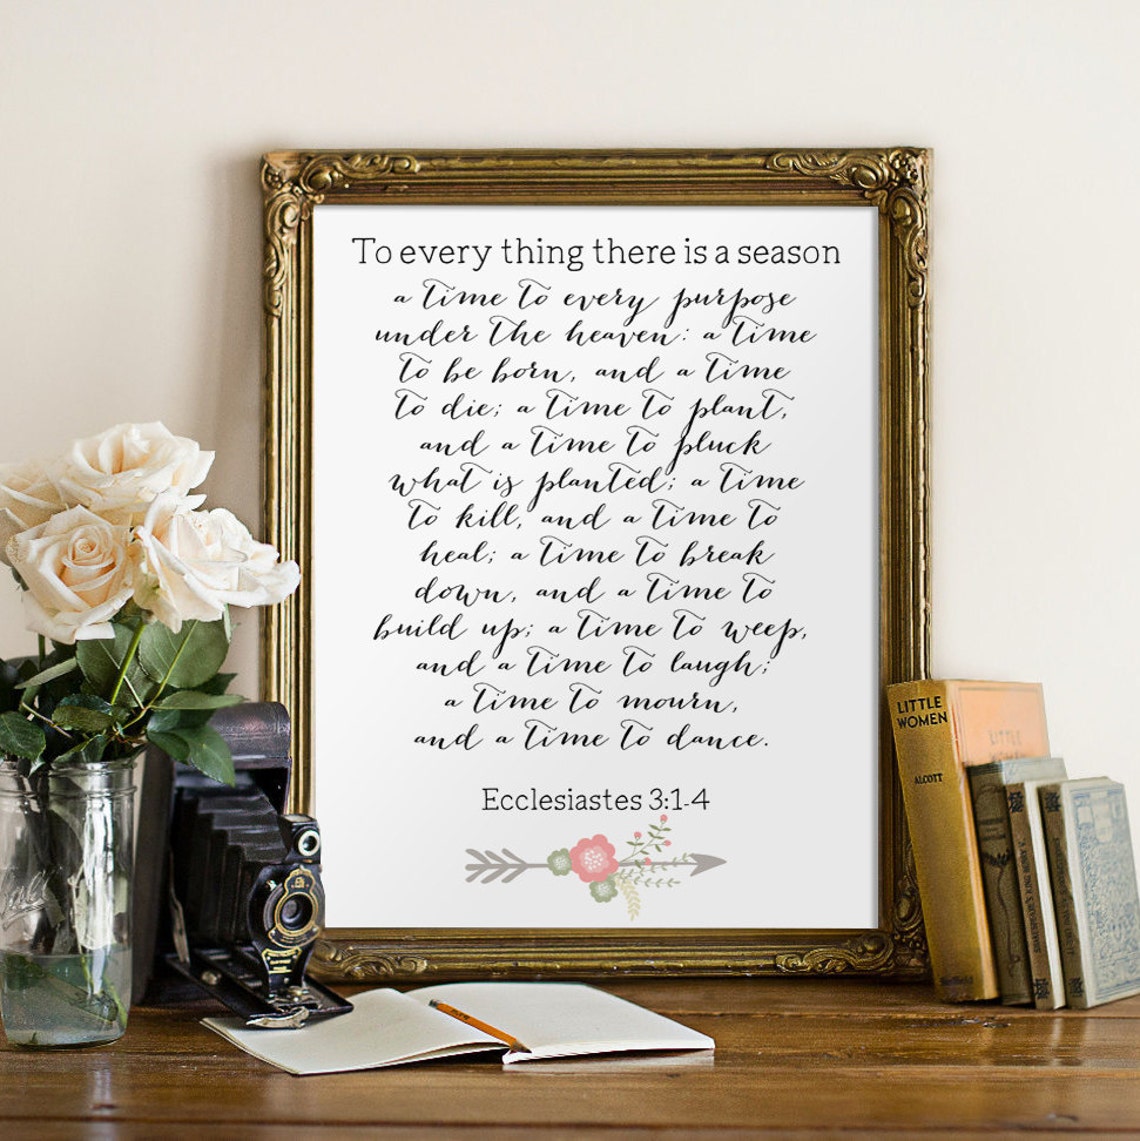 To every thing there is a season
a time to every purpose
under the heaven: a time
to be born, and a time
to die; a time to plant,
and a time to pluck
what is planted; a time
to kill, and a time to
heal; a time to break
down, and a time to
build up; a time to weep,
and a time to laugh;
a time to mourn,
and a time to dance.
Ecclesiastes 3:1-4
LITTLE
WOMEN
ALCOTT